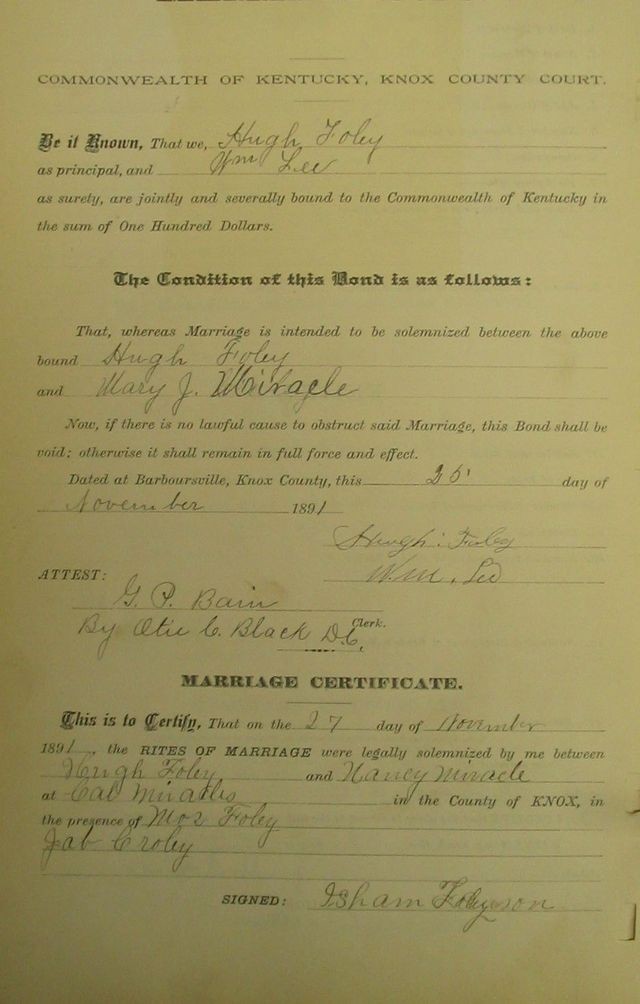 COMMONWEALTH OF KENTUCKY, KNOX COUNTY COURT.
Be it Known, That we, Hugh Foley
as principal, and Wm Lee
as surety, are jointly and severally bound to the Commonwealth of Kentucky in
the sum of One Hundred Dollars.
The Condition of this Bond is as follows:
That, whereas Marriage is intended to be solemnized between the above
bound Hugh Foley
and Mary J. Miracle
Now, if there is no lawful cause to obstruct said Marriage, this Bond shall be
void; otherwise it shall remain in full force and effect.
Dated at Barboursville, Knox County, this 25 day of
November 1891
Hugh Foley
ATTEST: W.M. Lee
G. P. Bain
By Otie C. Black D.C. Clerk.
MARRIAGE CERTIFICATE.
This is to Certify, That on the 27 day of November
1891, the RITES OF MARRIAGE were legally solemnized by me between
Hugh Foley and Nancy Miracle
at Cal Miracles in the County of KNOX, in
the presence of Foley
Croley
SIGNED: Isham